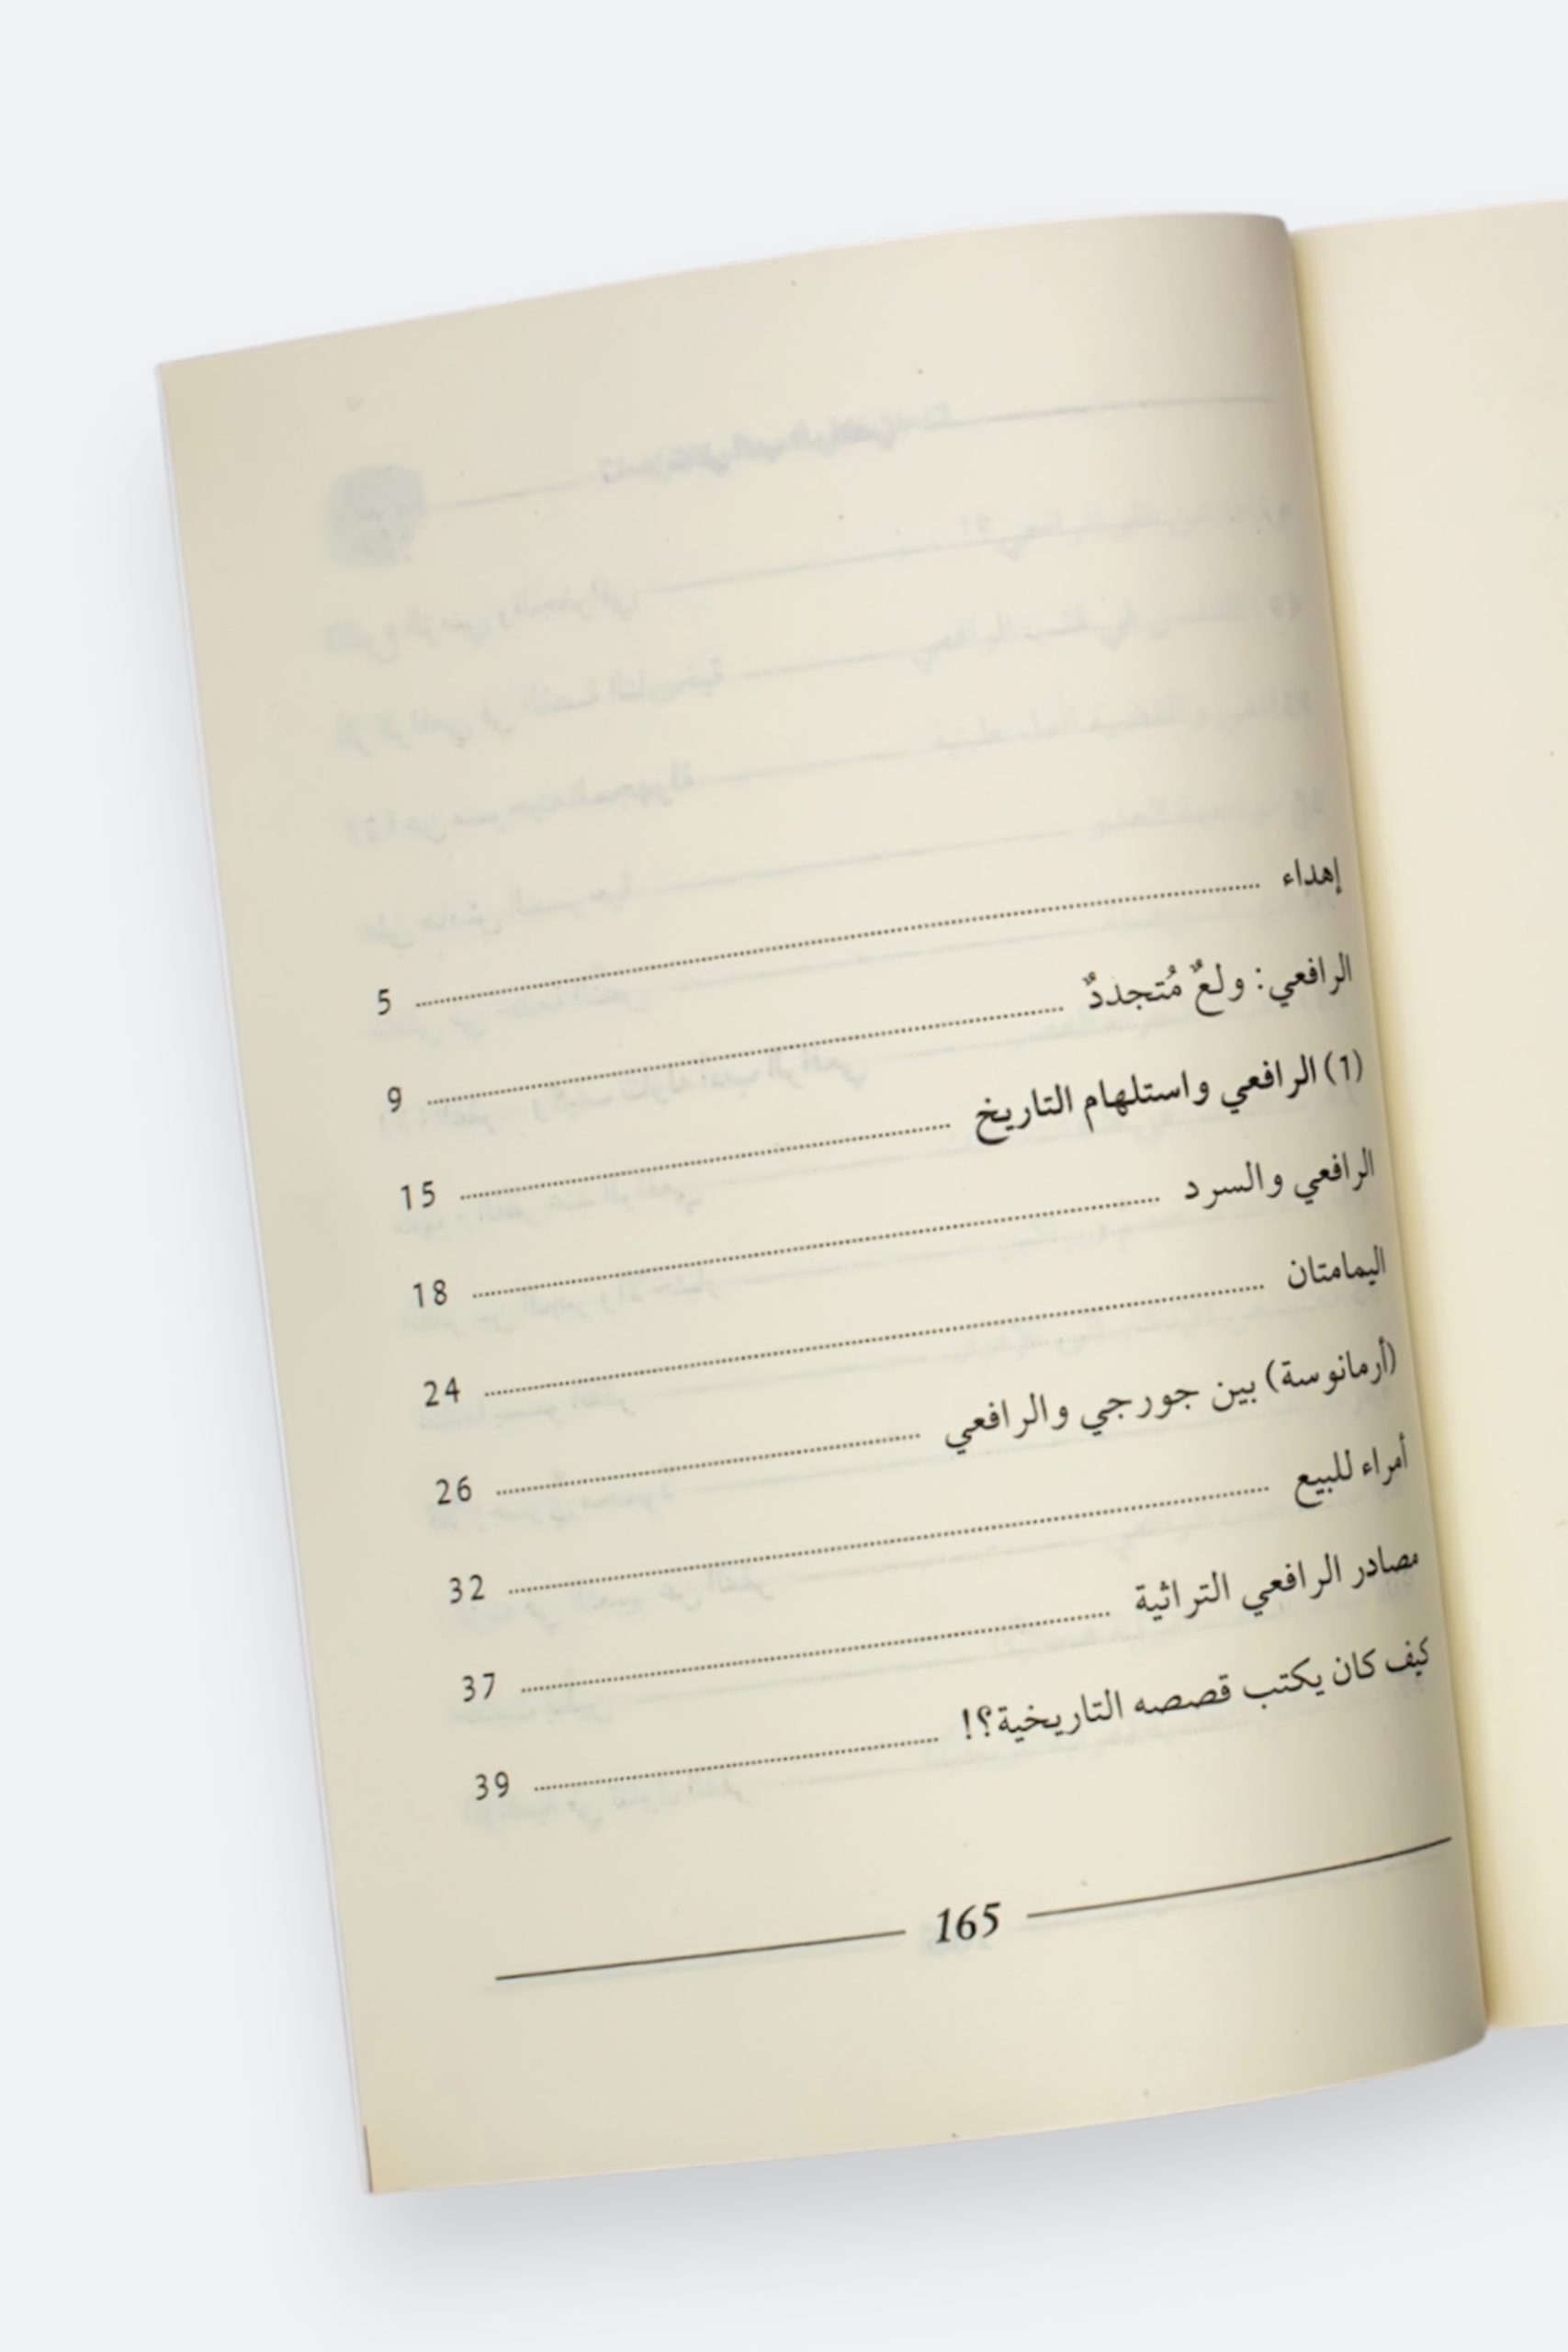 إهداء ........................ 5
الرافعي: ولعٌ مُتجددٌ ........................ 9
(1) الرافعي واستلهام التاريخ ........................ 15
الرافعي والسرد ........................ 18
اليمامتان ........................ 24
(أرمانوسة) بين جورجي والرافعي ........................ 26
أمراء للبيع ........................ 32
مصادر الرافعي التراثية ........................ 37
كيف كان يكتب قصصه التاريخية؟! ........................ 39
165